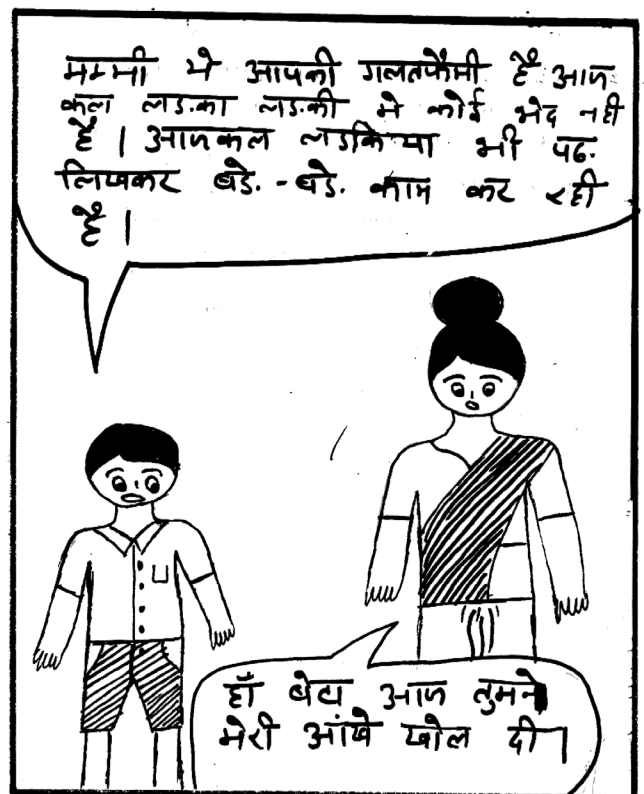 मम्मी ये आपकी गलतफैमी है आज
कल लड़का लड़की मे कोई भेद नही
है । आजकल लडकिया भी पढ़
लिखकर बडे़ -बडे़ काम कर रही
है ।
हाँ बेटा आज तुमने
मेरी आंखे खोल दी ।